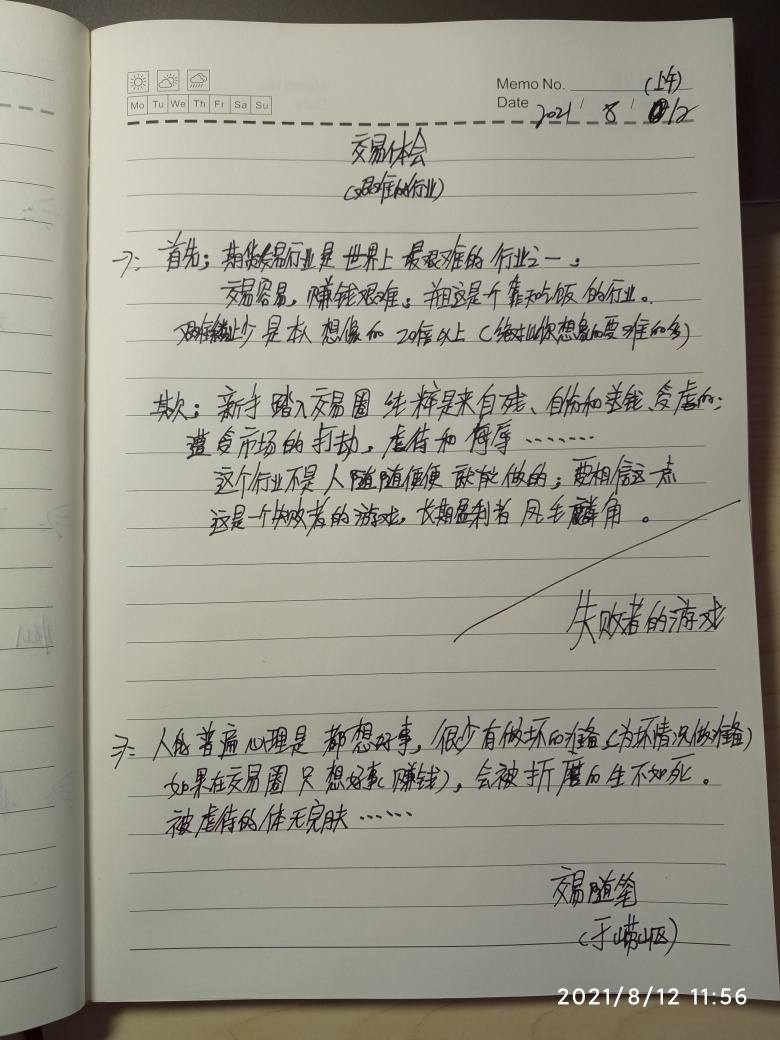 Memo No.
(上午)
Mo Tu We Th Fr Sa Su
Date 2021 / 8 / 12
交易体会
(艰难的行业)
一、首先; 期货交易行业是世界上最艰难的行业之一;
交易容易, 赚钱艰难; 并且这是个靠天吃饭的行业。
艰难至少是本人想像的20倍以上(绝对比你想象的要难的多)
其次; 新手踏入交易圈纯粹是来自残、自伤和送钱、受虐的;
遭受市场的打劫, 虐待和侮辱.......
这个行业不是人随随便便就能做的; 要相信这一点
这是一个失败者的游戏, 长期盈利者凤毛麟角。
失败者的游戏
二、人的普遍心理是都想好事, 很少有做坏的准备(为坏情况做准备)
如果在交易圈只想好事(赚钱), 会被折磨的生不如死。
被虐待的体无完肤……
交易随笔
(于崂山区)
2021/8/12 11:56